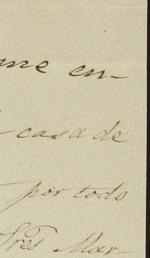 me en-
casa de
por todo
Tres Mar-